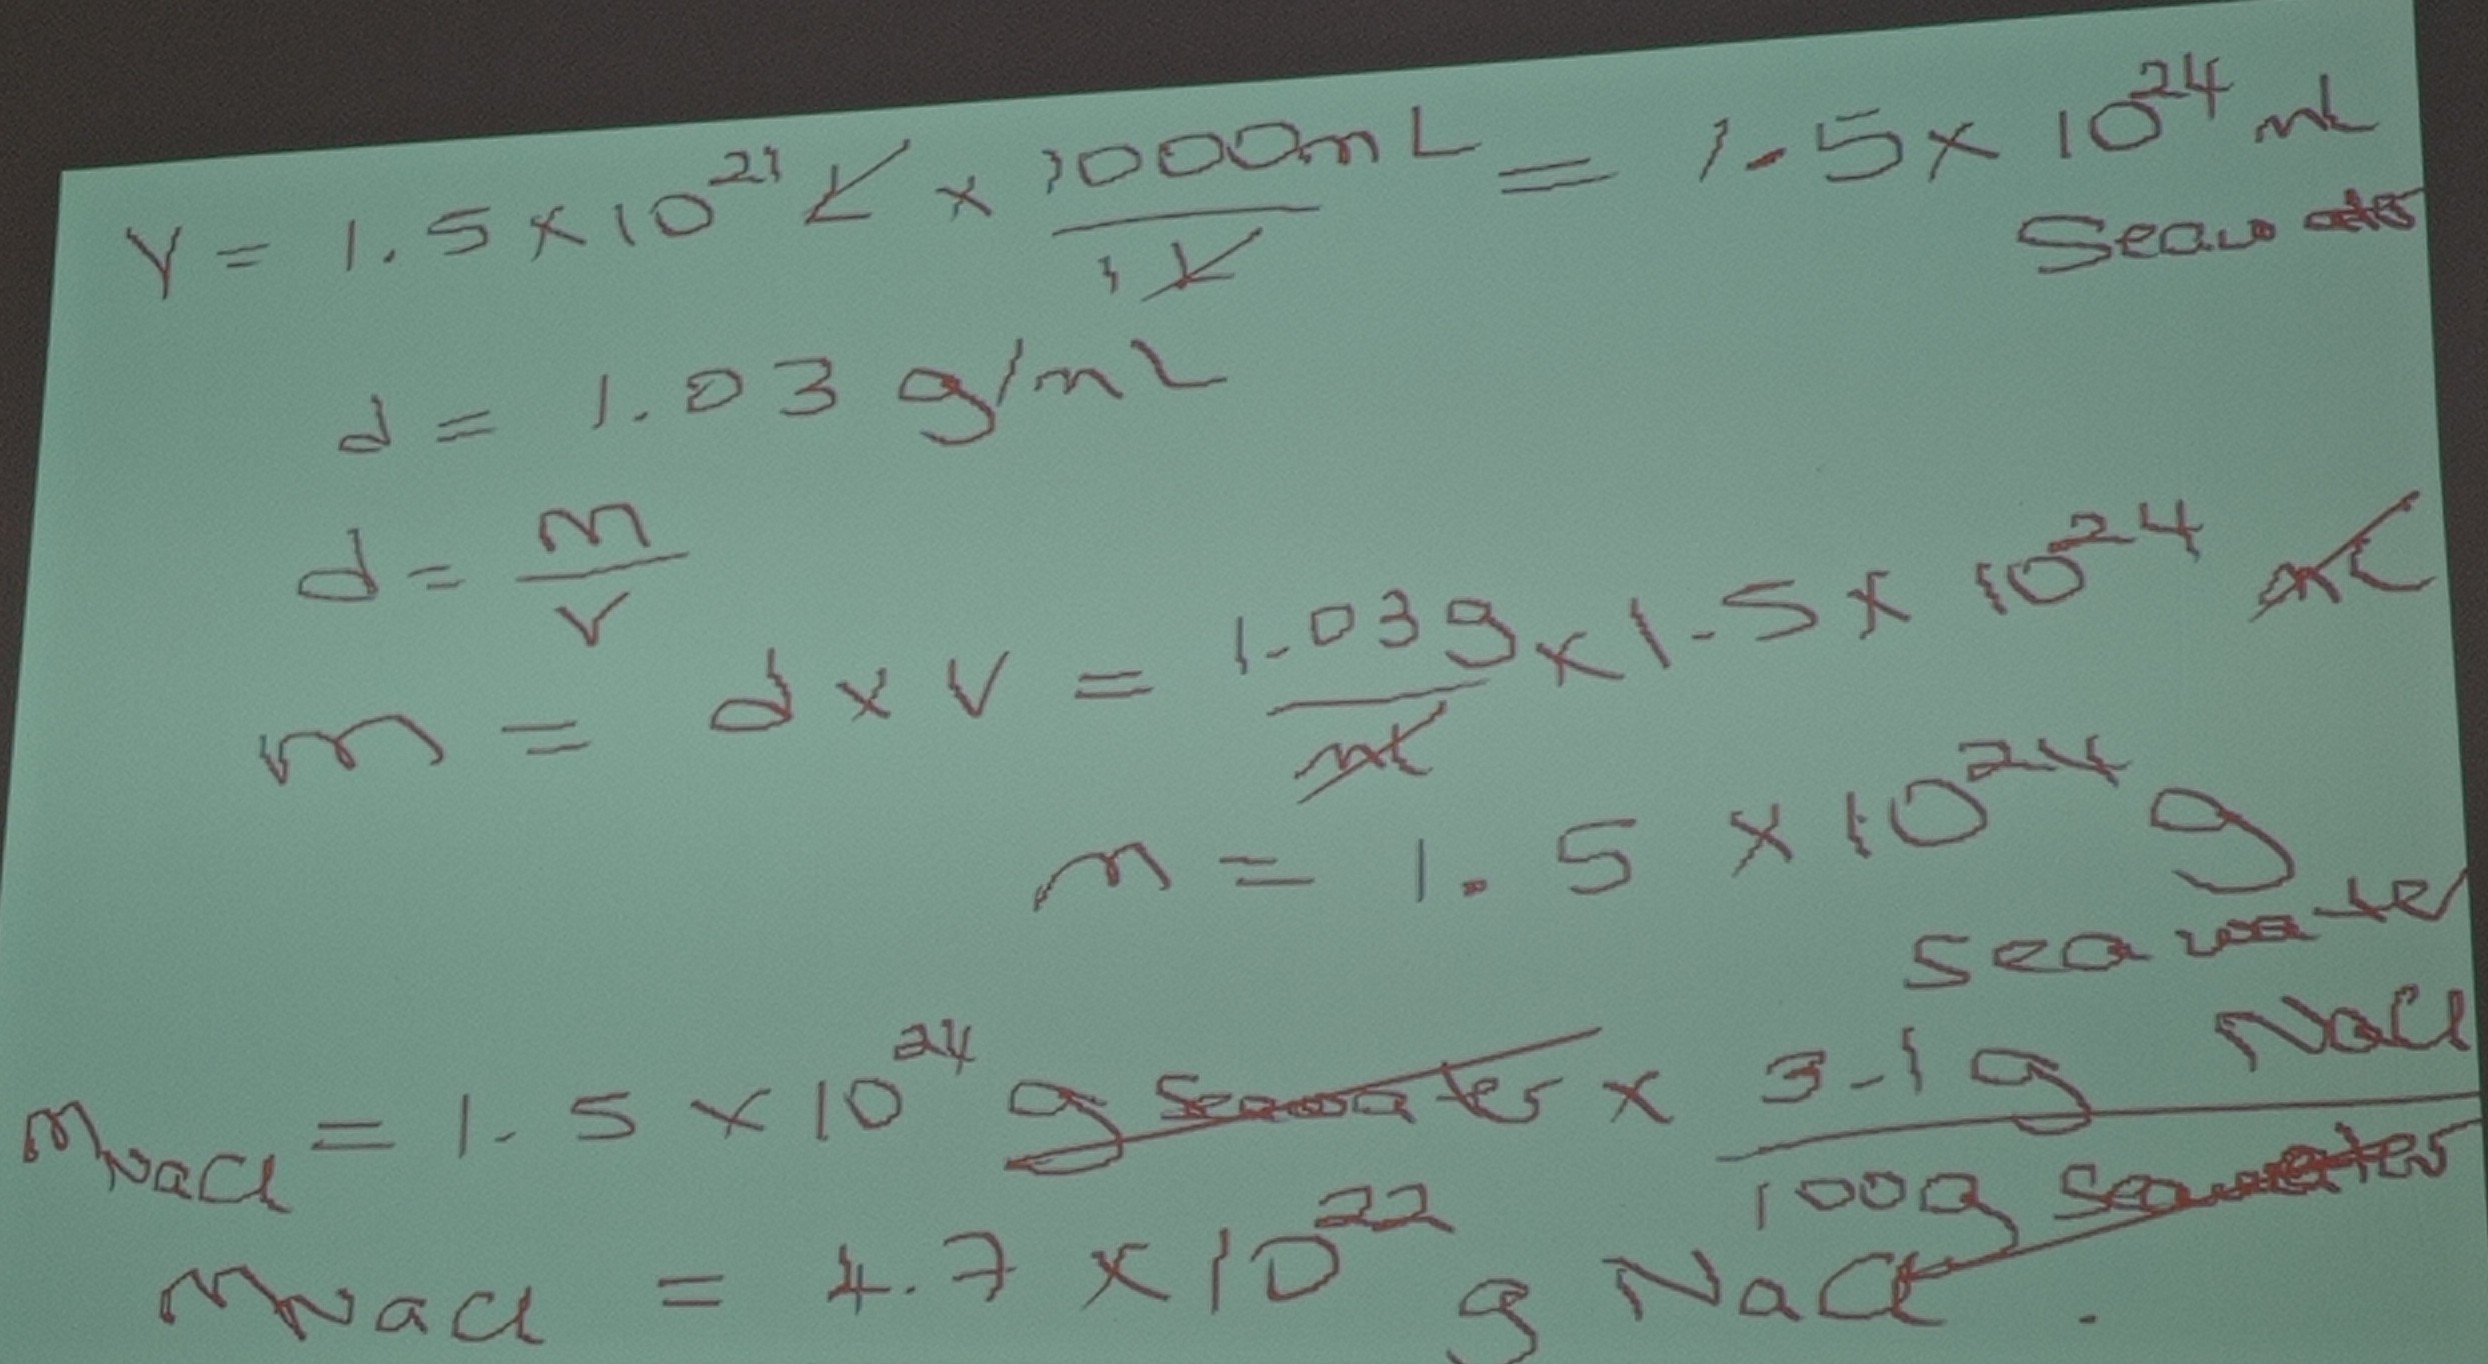 V = 1.5 × 10^21 L × 1000mL / 1L = 1.5 × 10^24 mL
Seawater
d = 1.03 g/mL
d = m / V
m = d × V = 1.03g / mL × 1.5 × 10^24 mL
m = 1.5 × 10^24 g
seawater
m_NaCl = 1.5 × 10^24 g seawater × 3.1g NaCl / 100g seawater
m_NaCl = 4.7 × 10^22 g NaCl.